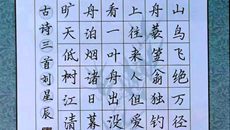 山鸟飞绝万径
舟蓑笠翁独钓
上往来人但爱
看一叶舟出没
舟泊烟渚日暮
旷天低树江清
古诗三首刘星辰